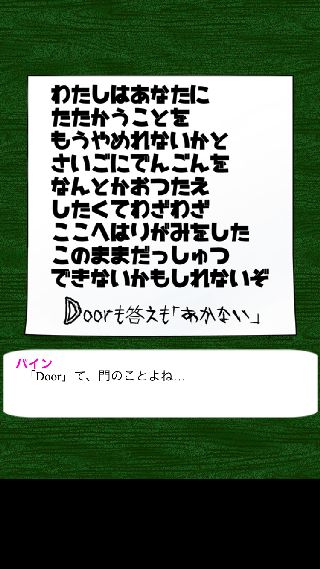 わたしはあなたに
たたかうことを
もうやめれないかと
さいごにでんごんを
なんとかおつたえ
したくてわざわざ
ここへはりがみをした
このままだっしゅつ
できないかもしれないぞ
Doorも答えも「あかない」
パイン
「Door」て、門のことよね…